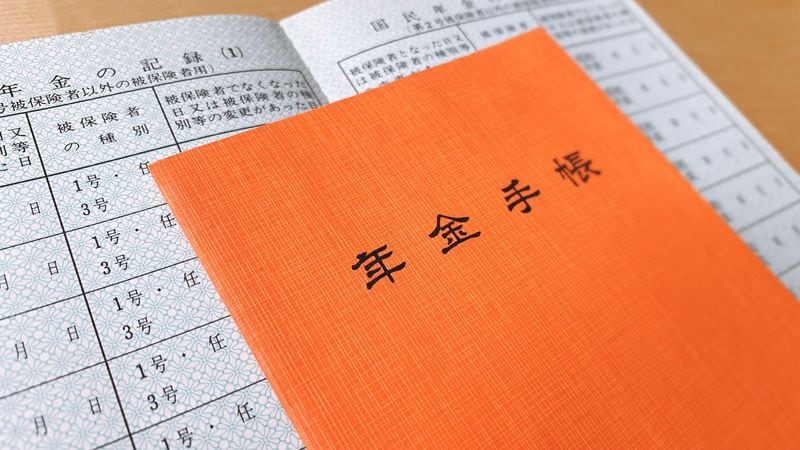 年金の記録(1)
号被保険者以外の被保険者用)
被保険者
の種別
被保険者でなくなった
日又は被保険者の種
別等の変更があった日
日又
別等
た日
日
1号・任
3号
月 日
1号・任
3号
月 日
1号・任
3号
月 日
1号・任
3号
1号・任
国民年金
(第2号被保険者以外の被保険
被保険者となった日又
は被保険者の種別等
被保険者
年金手帳